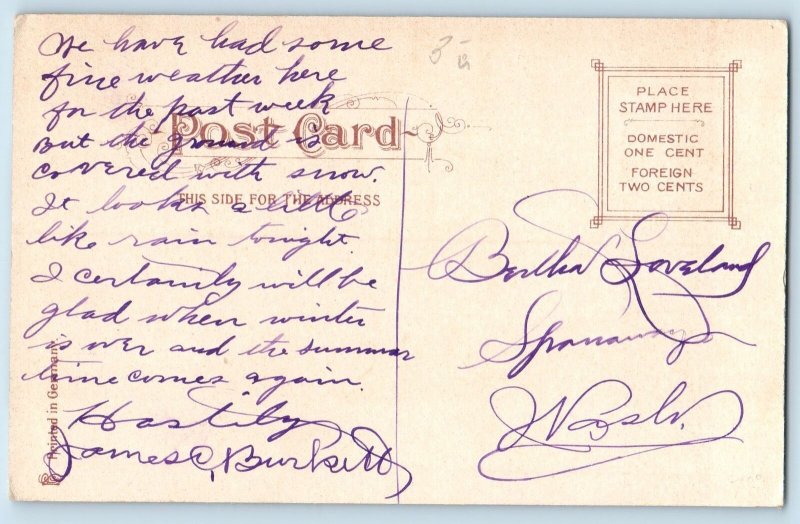 We have had some
fine weather here
for the past week
but the ground is
covered with snow.
It looks a little
like rain tonight.
I certainly will be
glad when winter
is over and the summer
time comes again.
Hastily
James C. Burkett
Post Card
THIS SIDE FOR THE ADDRESS
Printed in Germany
PLACE
STAMP HERE
DOMESTIC
ONE CENT
FOREIGN
TWO CENTS
Bertha Loveland
Spanaway
Wash.